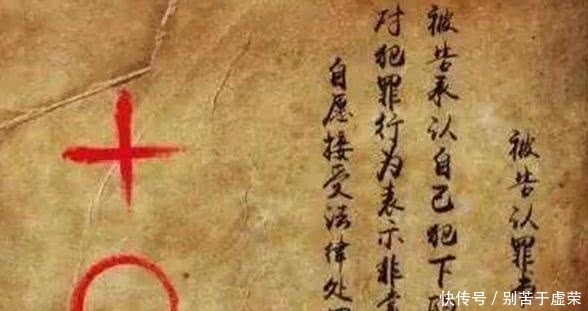 被告认罪
被告承认自己犯下
对犯罪行为表示非
自愿接受法律处
快传号／别苦于虚荣